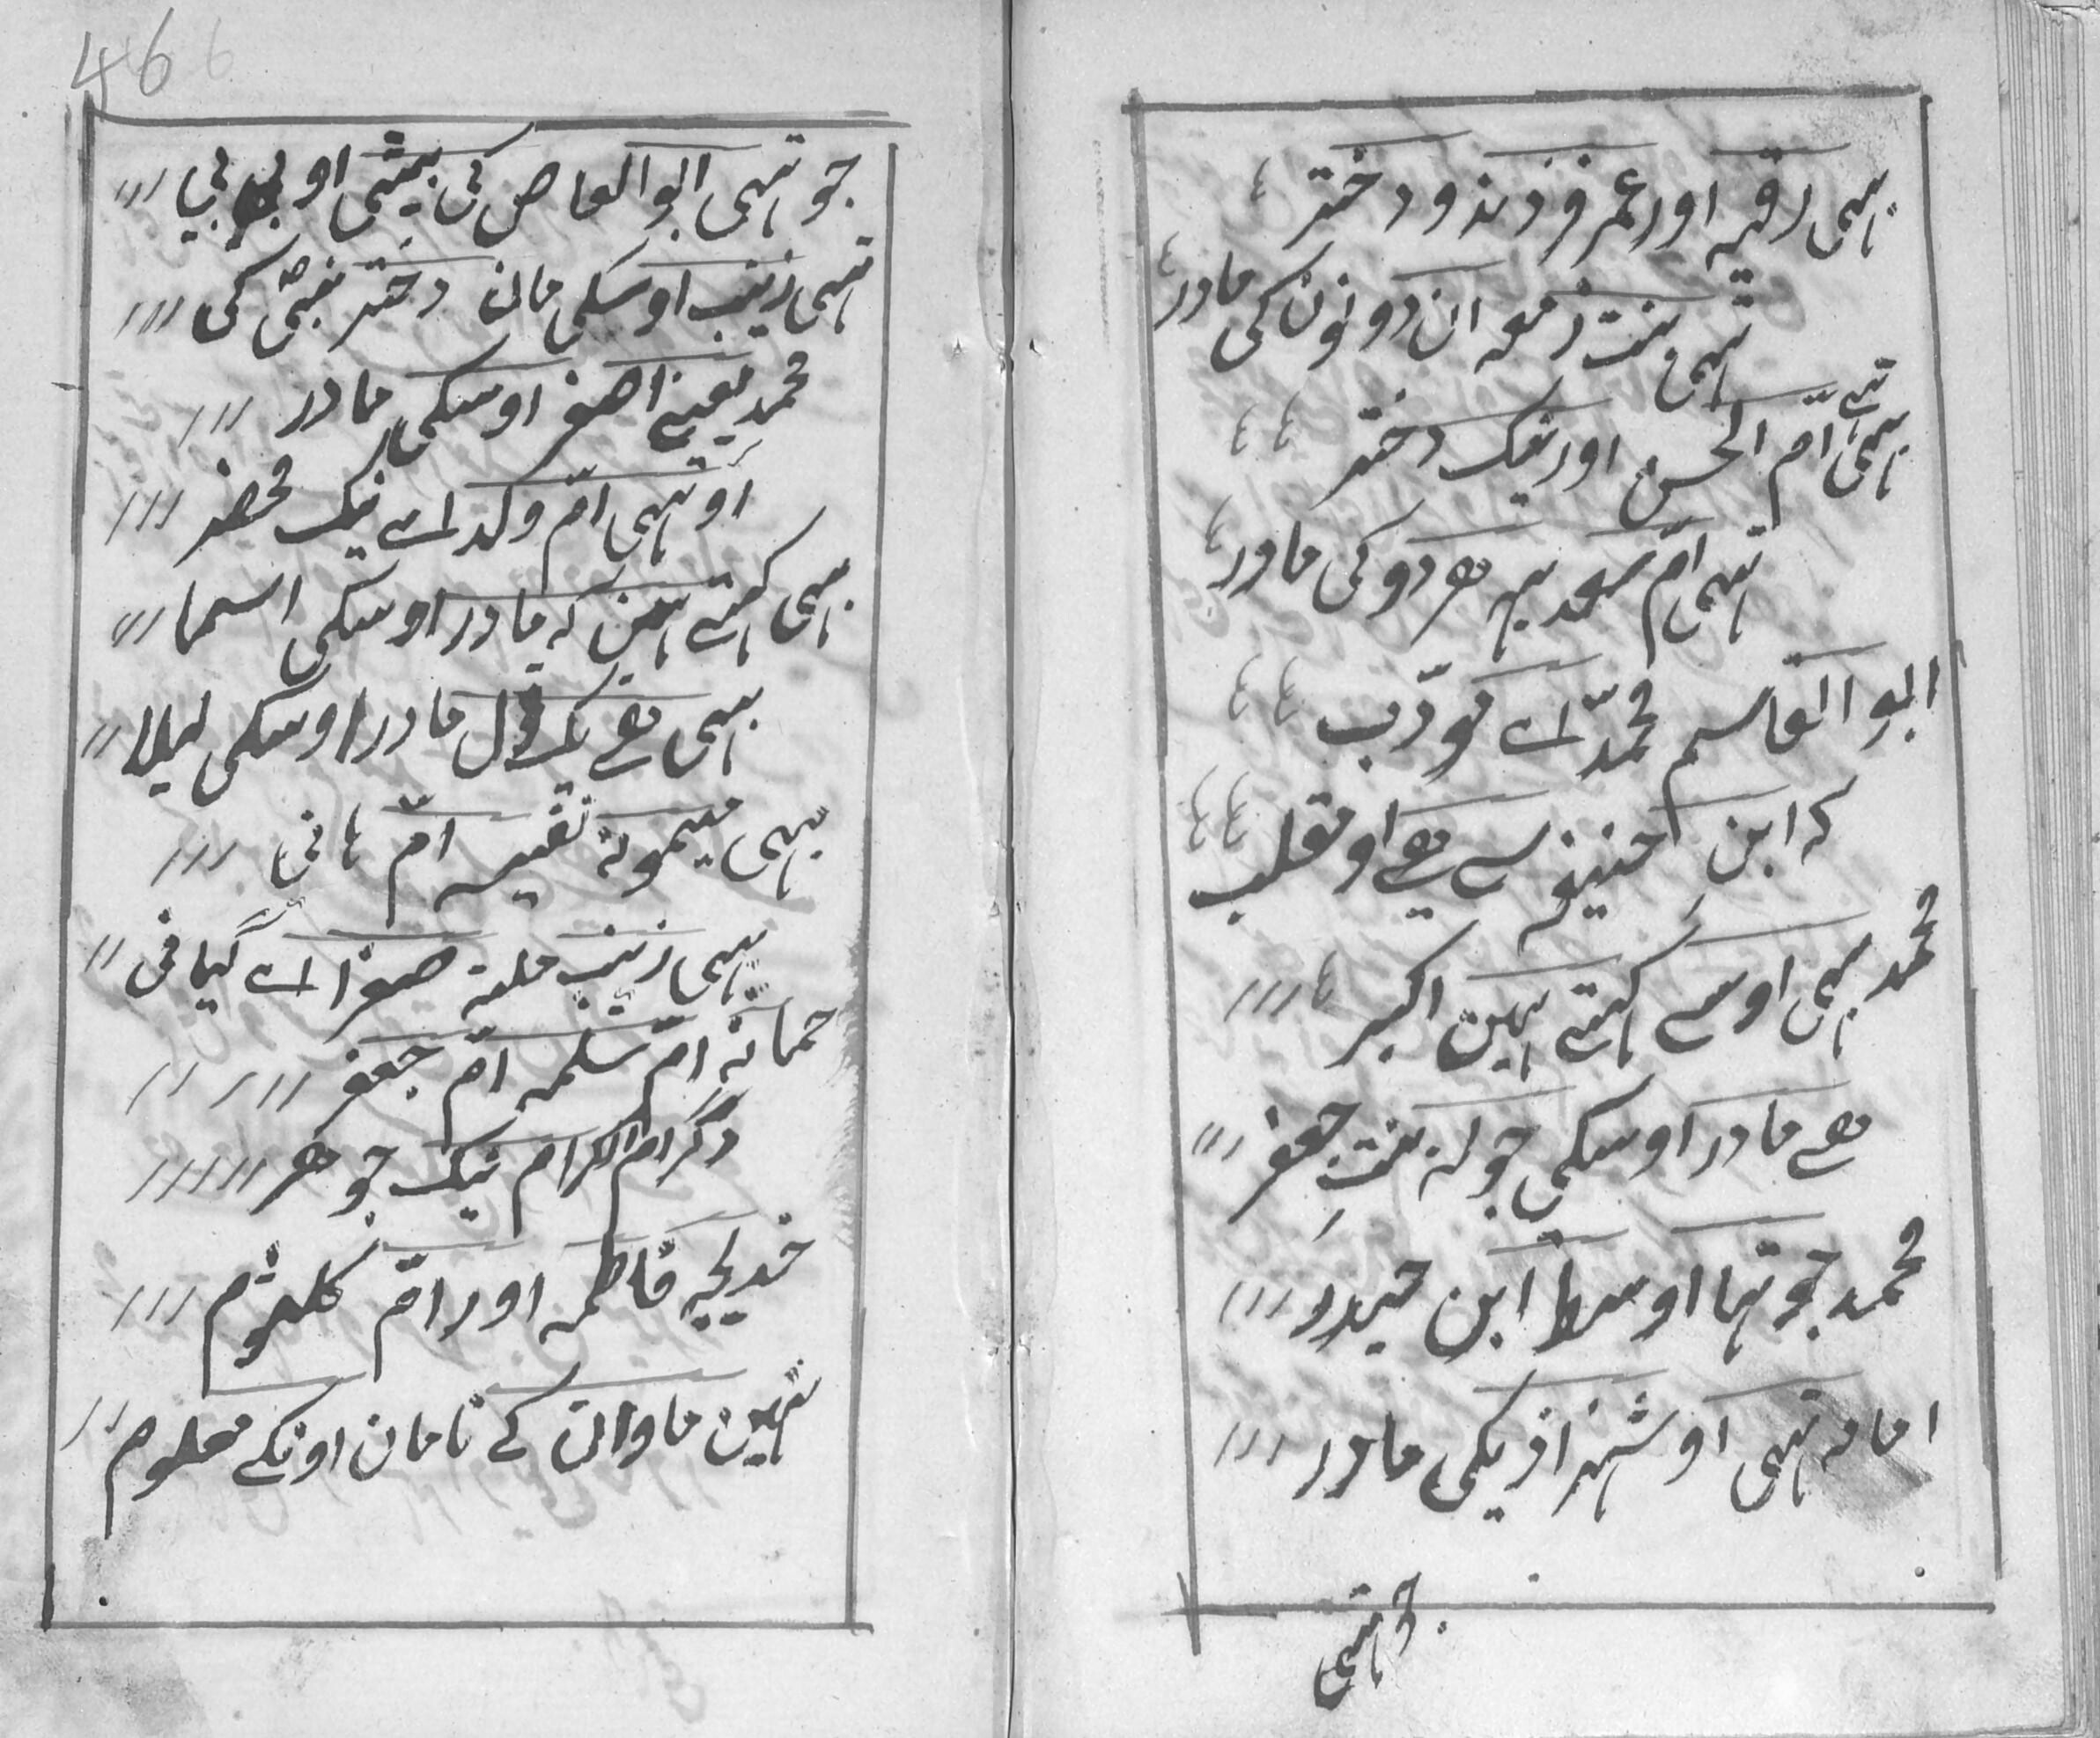 بہی رقیہ اور عمر فرزند و دختر
تہی بنت زمعہ ان دونون کی مادر
بہی امّ الحسن اور نیک دختر
تہی امّ سعد یہ هر دو کی مادر
ابو القاسم محمّد اے مودّب
کہ ابن حنیفہ سے هے او مقلب
محمد بہی اوسے کہتے ہین اکبر
هے مادر اوسکی خولہ بنتِ جعفر
محمد جو تہا اوسط ابن حیدر
امامہ تہی او شہزادیکی مادر
جو تہی
46
جو تہی ابو العاص کی بیٹی او بی بی
تہی زینب اوسکی مان دختر نبیؐ کی
محمدِ یعنے اصغر اوسکی مادر
او تہی امّ ولد اے نیک محضر
بہی کہتے ہین کہ مادر اوسکی اسما
بہی هے یک مادر اوسکی لیلا
بہی میمونہ نفیسہ امّ هانی
بہی زینب ملہ صغرا اے گیانی
حمانہ امّ سلمہ امّ جعفر
دگر ام الکرام نیک جوهر
خدیجہ فاطمہ اور امّ کلثوم
نہین ماوان کے نامان اونکے معلوم